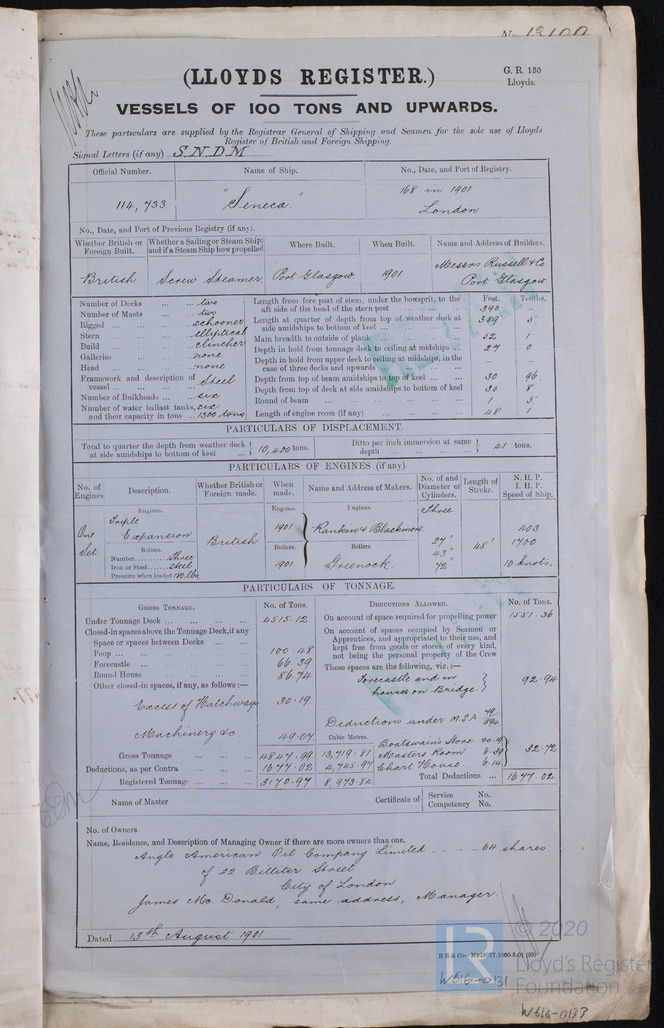 No. 13100
(LLOYDS REGISTER.)
G. R. 130
Lloyds.
VESSELS OF 100 TONS AND UPWARDS.
These particulars are supplied by the Registrar General of Shipping and Seamen for the sole use of Lloyds
Register of British and Foreign Shipping
Signal Letters (if any) S.N.D.M
Official Number. Name of Ship. No., Date, and Port of Registry.
114,733 "Seneca" 168 in 1901
London
No., Date, and Port of Previous Registry (if any).
Whether British or Foreign Built. Whether a Sailing or Steam Ship; and if a Steam Ship how propelled Where Built. When Built. Name and Address of Builders.
British Screw Steamer Port Glasgow 1901 Messrs Russell & Co
Port Glasgow
Number of Decks ... ... two
Number of Masts ... two
Rigged ... ... schooner
Stern ... ... elliptical
Build ... ... clincher
Galleries ... ... none
Head ... ... none
Framework and description of vessel ... steel
Number of Bulkheads ... six
Number of water ballast tanks, six
and their capacity in tons ... 1300 tons
Feet. Tenths.
Length from fore part of stem, under the bowsprit, to the aft side of the head of the stern post 390
Length at quarter of depth from top of weather deck at side amidships to bottom of keel ... 389 5
Main breadth to outside of plank ... 52 1
Depth in hold from tonnage deck to ceiling at midships ... 27 0
Depth in hold from upper deck to ceiling at midships, in the case of three decks and upwards — —
Depth from top of beam amidships to top of keel ... 30 96
Depth from top of deck at side amidships to bottom of keel 30 8
Round of beam ... 1 5
Length of engine room (if any) ... 48 1
PARTICULARS OF DISPLACEMENT.
Total to quarter the depth from weather deck at side amidships to bottom of keel ... 10,400 tons.
Ditto per inch immersion at same depth ... 41 tons.
PARTICULARS OF ENGINES (if any).
No. of Engines. Description. Whether British or Foreign made. When made. Name and Address of Makers. No. of and Diameter of Cylinders. Length of Stroke. N. H. P. I. H. P. Speed of Ship.
Engines. Engines. Engines. Three
Triple
One Expansion British 1901 Rankin & Blackmore 27" 48" 403
Set Boilers. Boilers. Boilers 43" 1700
Number ... Three
Iron or Steel ... steel 1901 Greenock. 72" 10 knots.
Pressure when loaded 180 lbs
PARTICULARS OF TONNAGE.
GROSS TONNAGE. No. of Tons. DEDUCTIONS ALLOWED. No. of Tons.
Under Tonnage Deck ... 4515.12
On account of space required for propelling power 1551.36
Closed-in spaces above the Tonnage Deck, if any
Space or spaces between Decks ...
Poop ... 100.48
Forecastle ... 66.39
Round House ... 86.74
Other closed-in spaces, if any, as follows:—
Excess of Hatchways 30.19
Machinery &c 49.07
On account of spaces occupied by Seamen or Apprentices, and appropriated to their use, and kept free from goods or stores of every kind, not being the personal property of the Crew
These spaces are the following, viz.:—
Forecastle and in
houses on Bridge. } 92.94
Deductions under M.S.A. 79/894
Cubic Metres.
Gross Tonnage ... 4847.99 13,719.81
Deductions, as per Contra ... 1677.02 4,745.97
Registered Tonnage ... 3170.97 8,973.84
Boatswain's Store 20.19
Masters Room 6.39 32.72
Chart House 6.14
Total Deductions ... 1677.02
Name of Master Certificate of { Service No.
Competency No.
No. of Owners
Name, Residence, and Description of Managing Owner if there are more owners than one.
Anglo American Oil Company Limited ---- 64 shares
of 22 Billiter Street
City of London
James Mc Donald, same address, Manager.
Dated 13th August 1901
W616-0131
© 2020
Lloyd's Register
Foundation
W616-0133